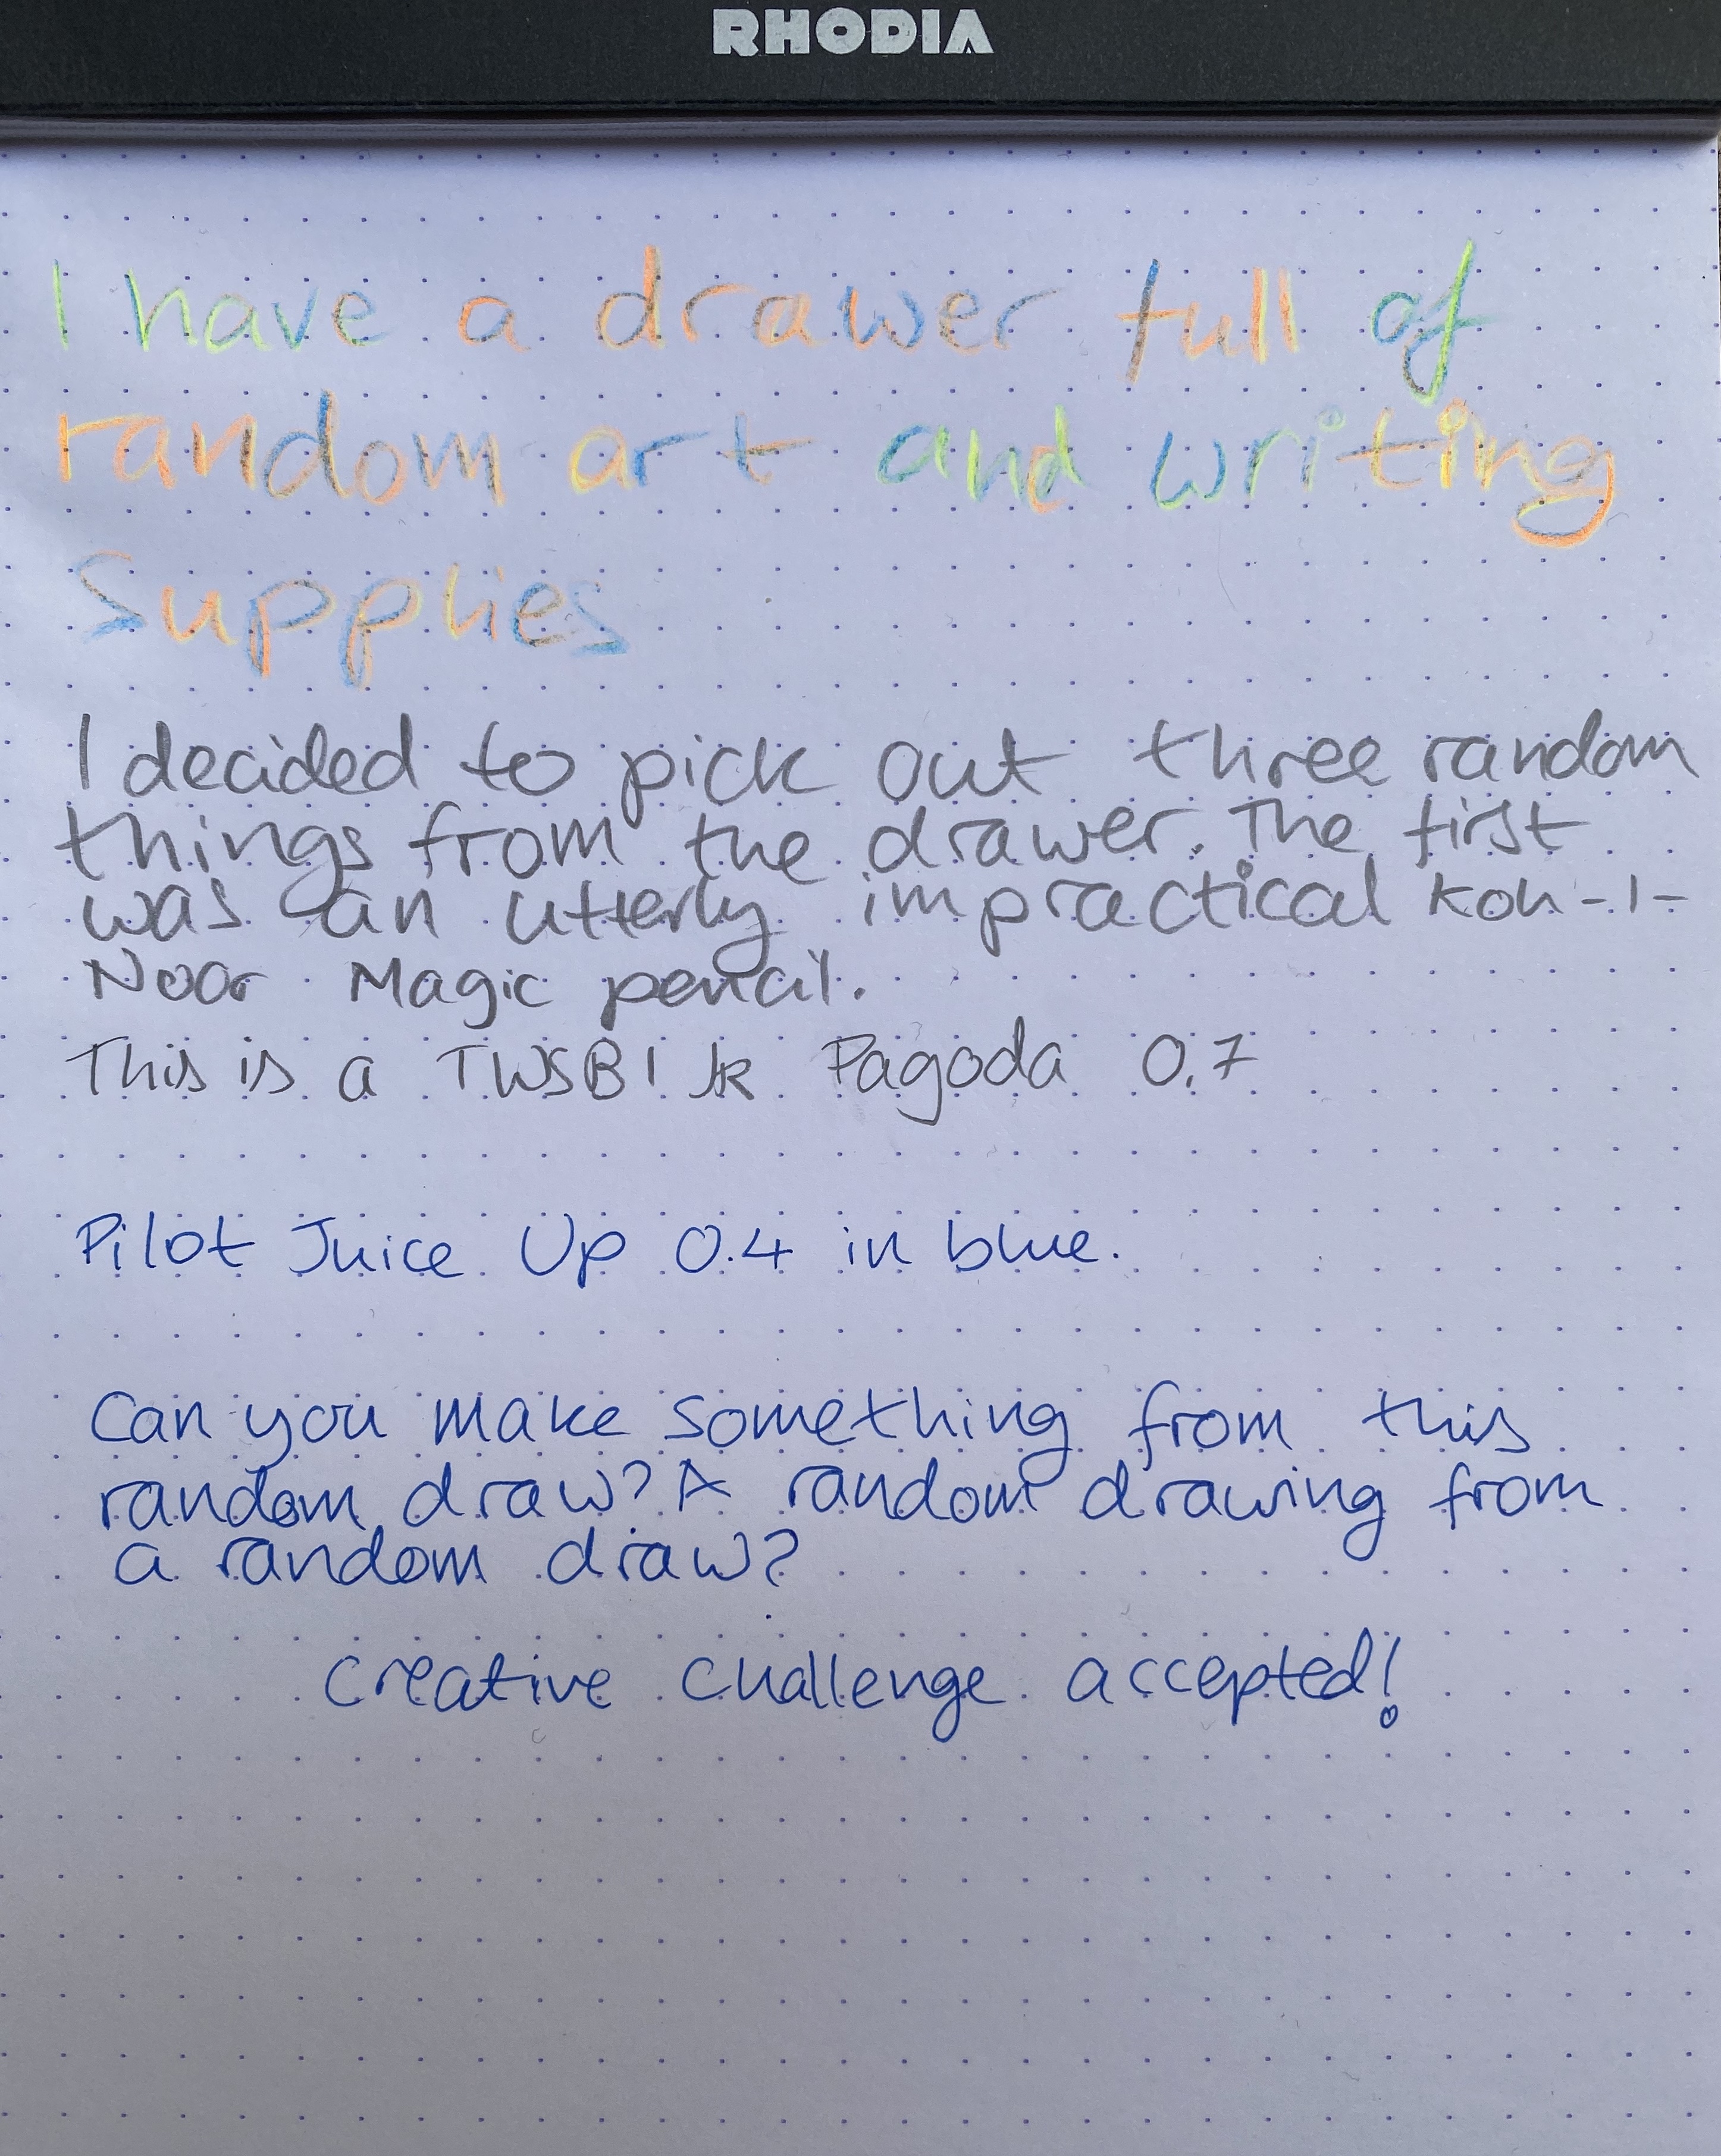 RHODIA
I have a drawer full of
random art and writing
Supplies
I decided to pick out three random
things from the drawer. The first
was an utterly impractical Koh-I-
Noor Magic pencil.
This is a TWSBI Jr Pagoda 0.7
Pilot Juice Up 0.4 in blue.
Can you make something from this
random draw? A random drawing from
a random draw?
Creative challenge accepted!